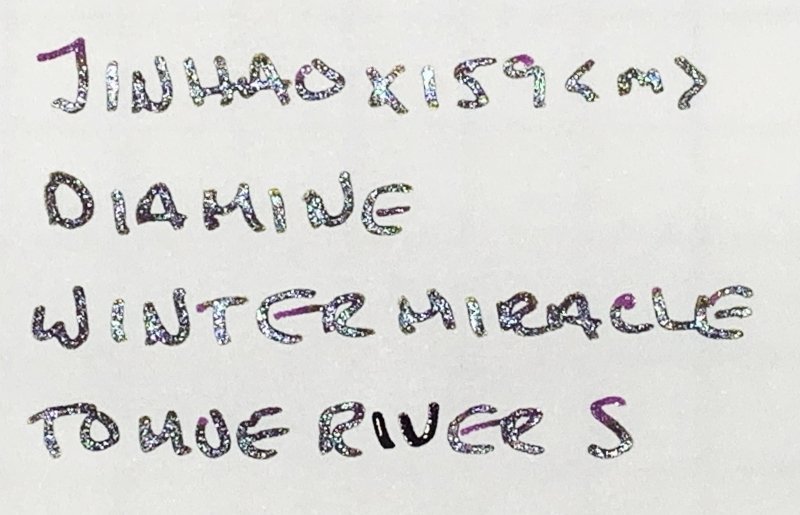 JINHAO X159 <M>
DIAMINE
WINTER MIRACLE
TOMOE RIVER S